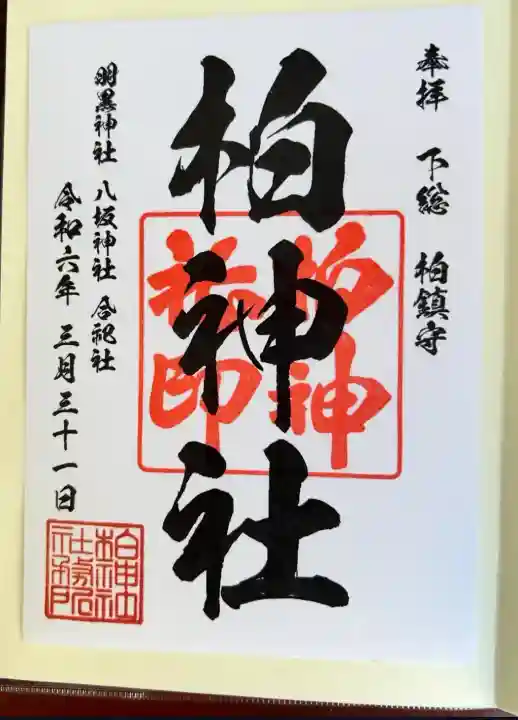 奉拝 下総 柏鎮守
柏神社
柏神
社印
羽黒神社 八坂神社 合祀社
令和六年 三月三十一日
柏神社
社務所
之印